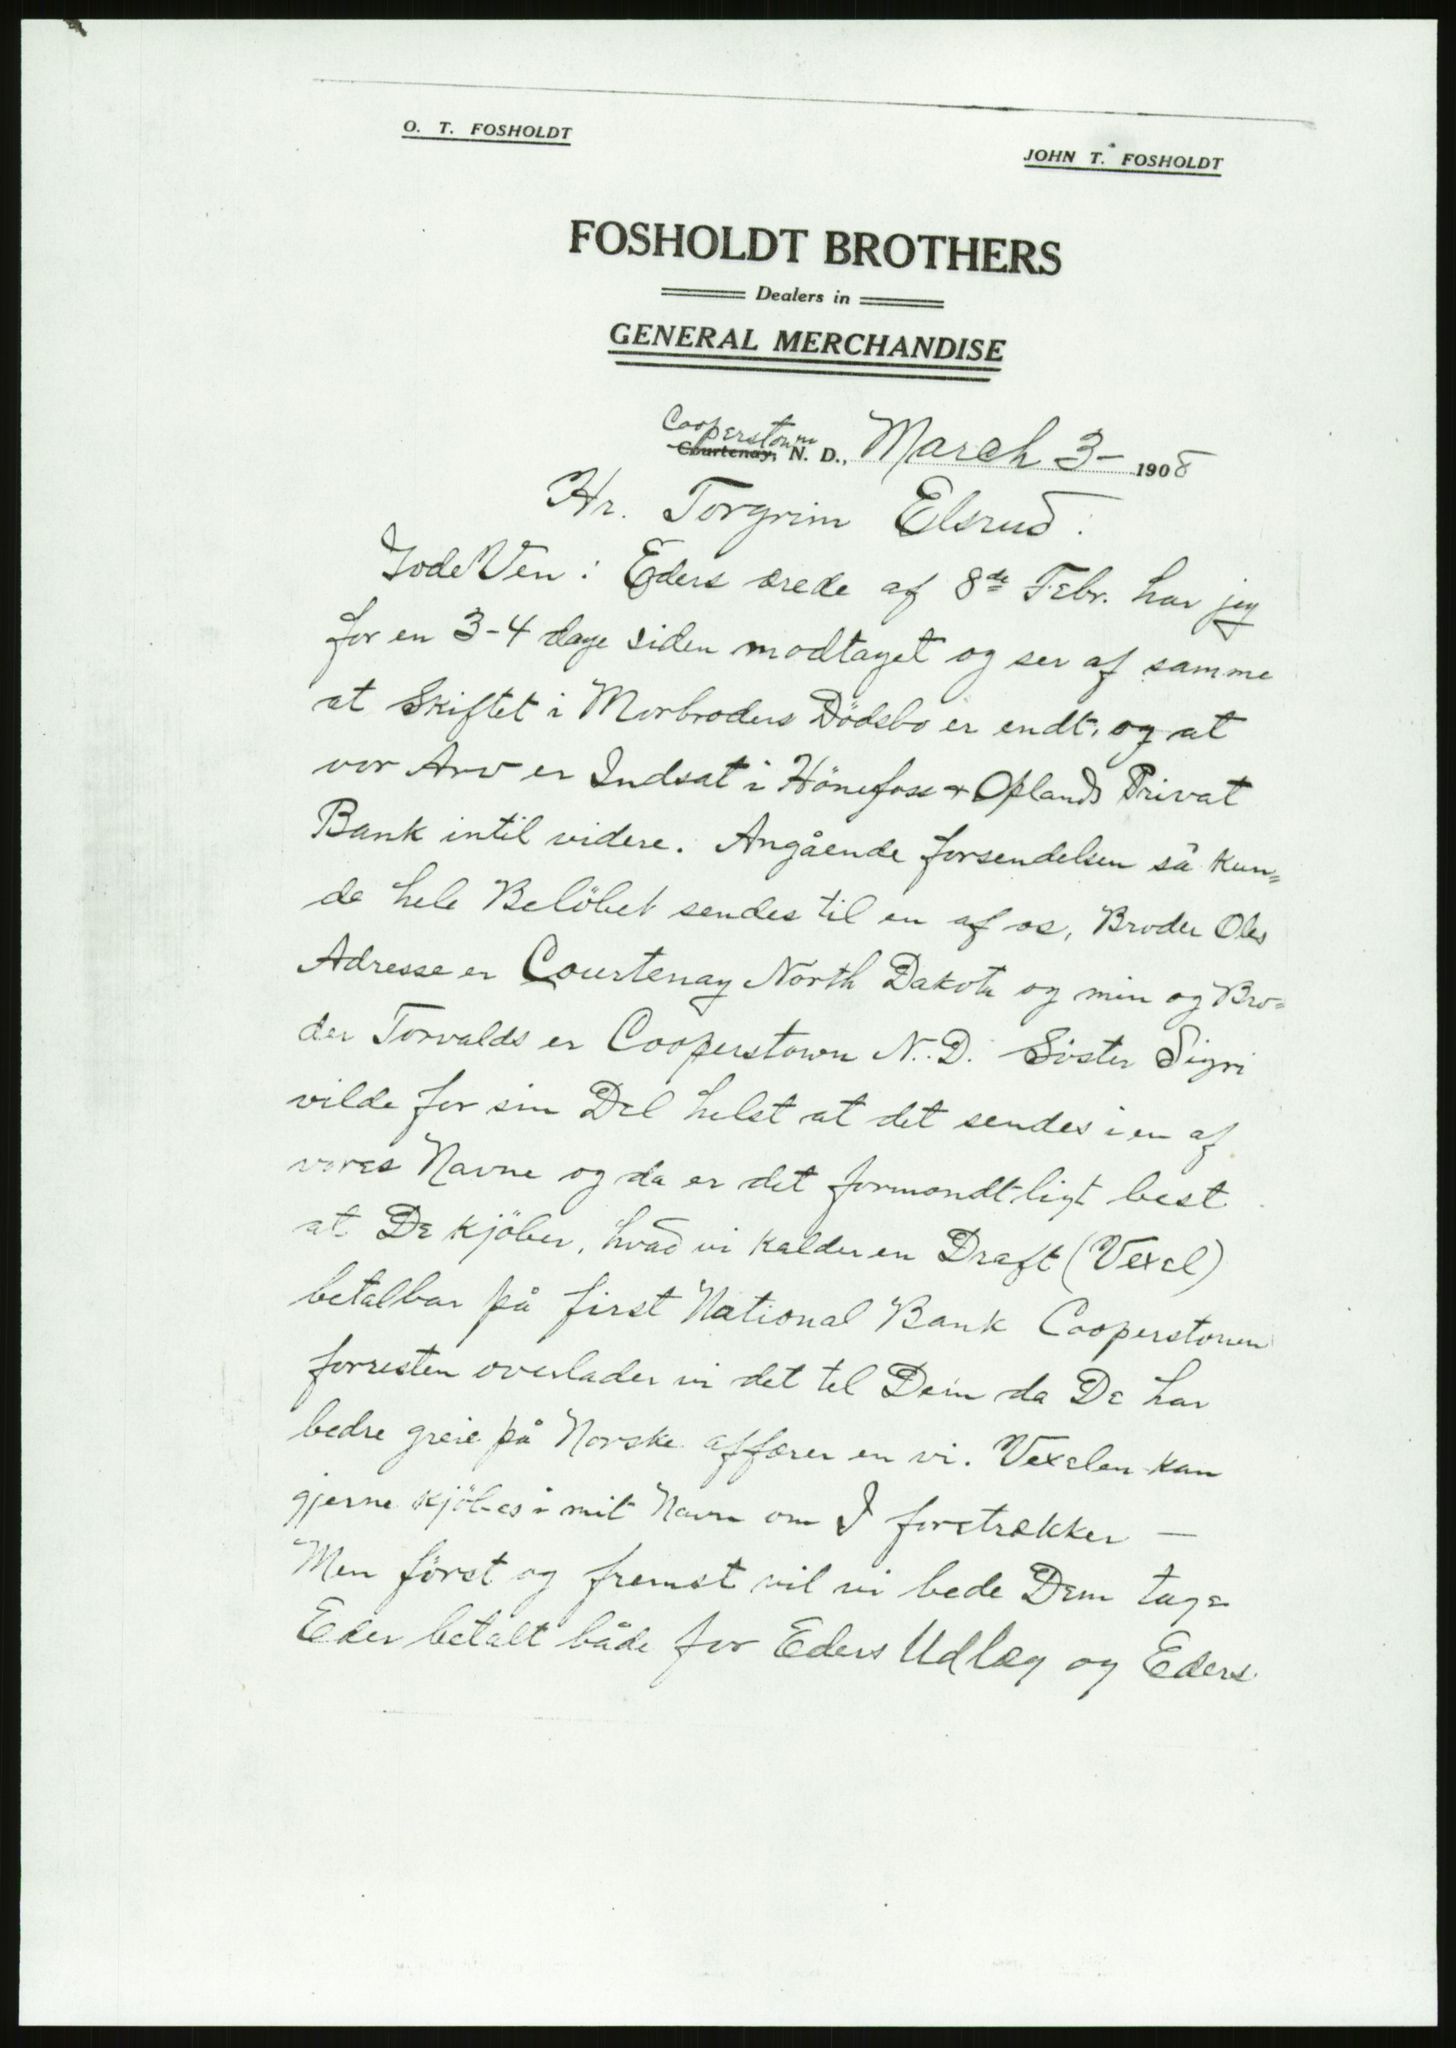 O. T. FOSHOLDT
JOHN T. FOSHOLDT
FOSHOLDT BROTHERS
Dealers in
GENERAL MERCHANDISE
Cooperstown
Courtenay, N. D., March 3- 1908
Hr. Torgrim Elsrud:
Gode Ven: Eders ærede af 8de Febr. har jeg
for en 3-4 dage siden modtaget og ser af samme
at Skiftet i Morbroders Dödsbo er endt, og at
vor Arv er Indsat i Hönefoss & Oplands Privat
Bank intil videre. Angående forsendelsen så kun=
de hele Belöbet sendes til en af os, Broder Oles
Adresse er Courtenay North Dakota og min og Bro=
der Torvalds er Cooperstown N.D. Söster Sigri
vilde for sin Del helst at det sendes i en af
vores Navne og da er det formondtligt best
at De kjöber, hvad vi kalder en Draft (Vexel)
betalbar på first National Bank Cooperstown
forresten overlader vi det til Dem da De har
bedre greie på Norske affærer en vi. Vexelen kan
gjerne kjöbes i mit Navn om I foretrækker —
Men först og fremst vil vi bede Dem tage
Eder betalt både for Eders Udlæg og Eders